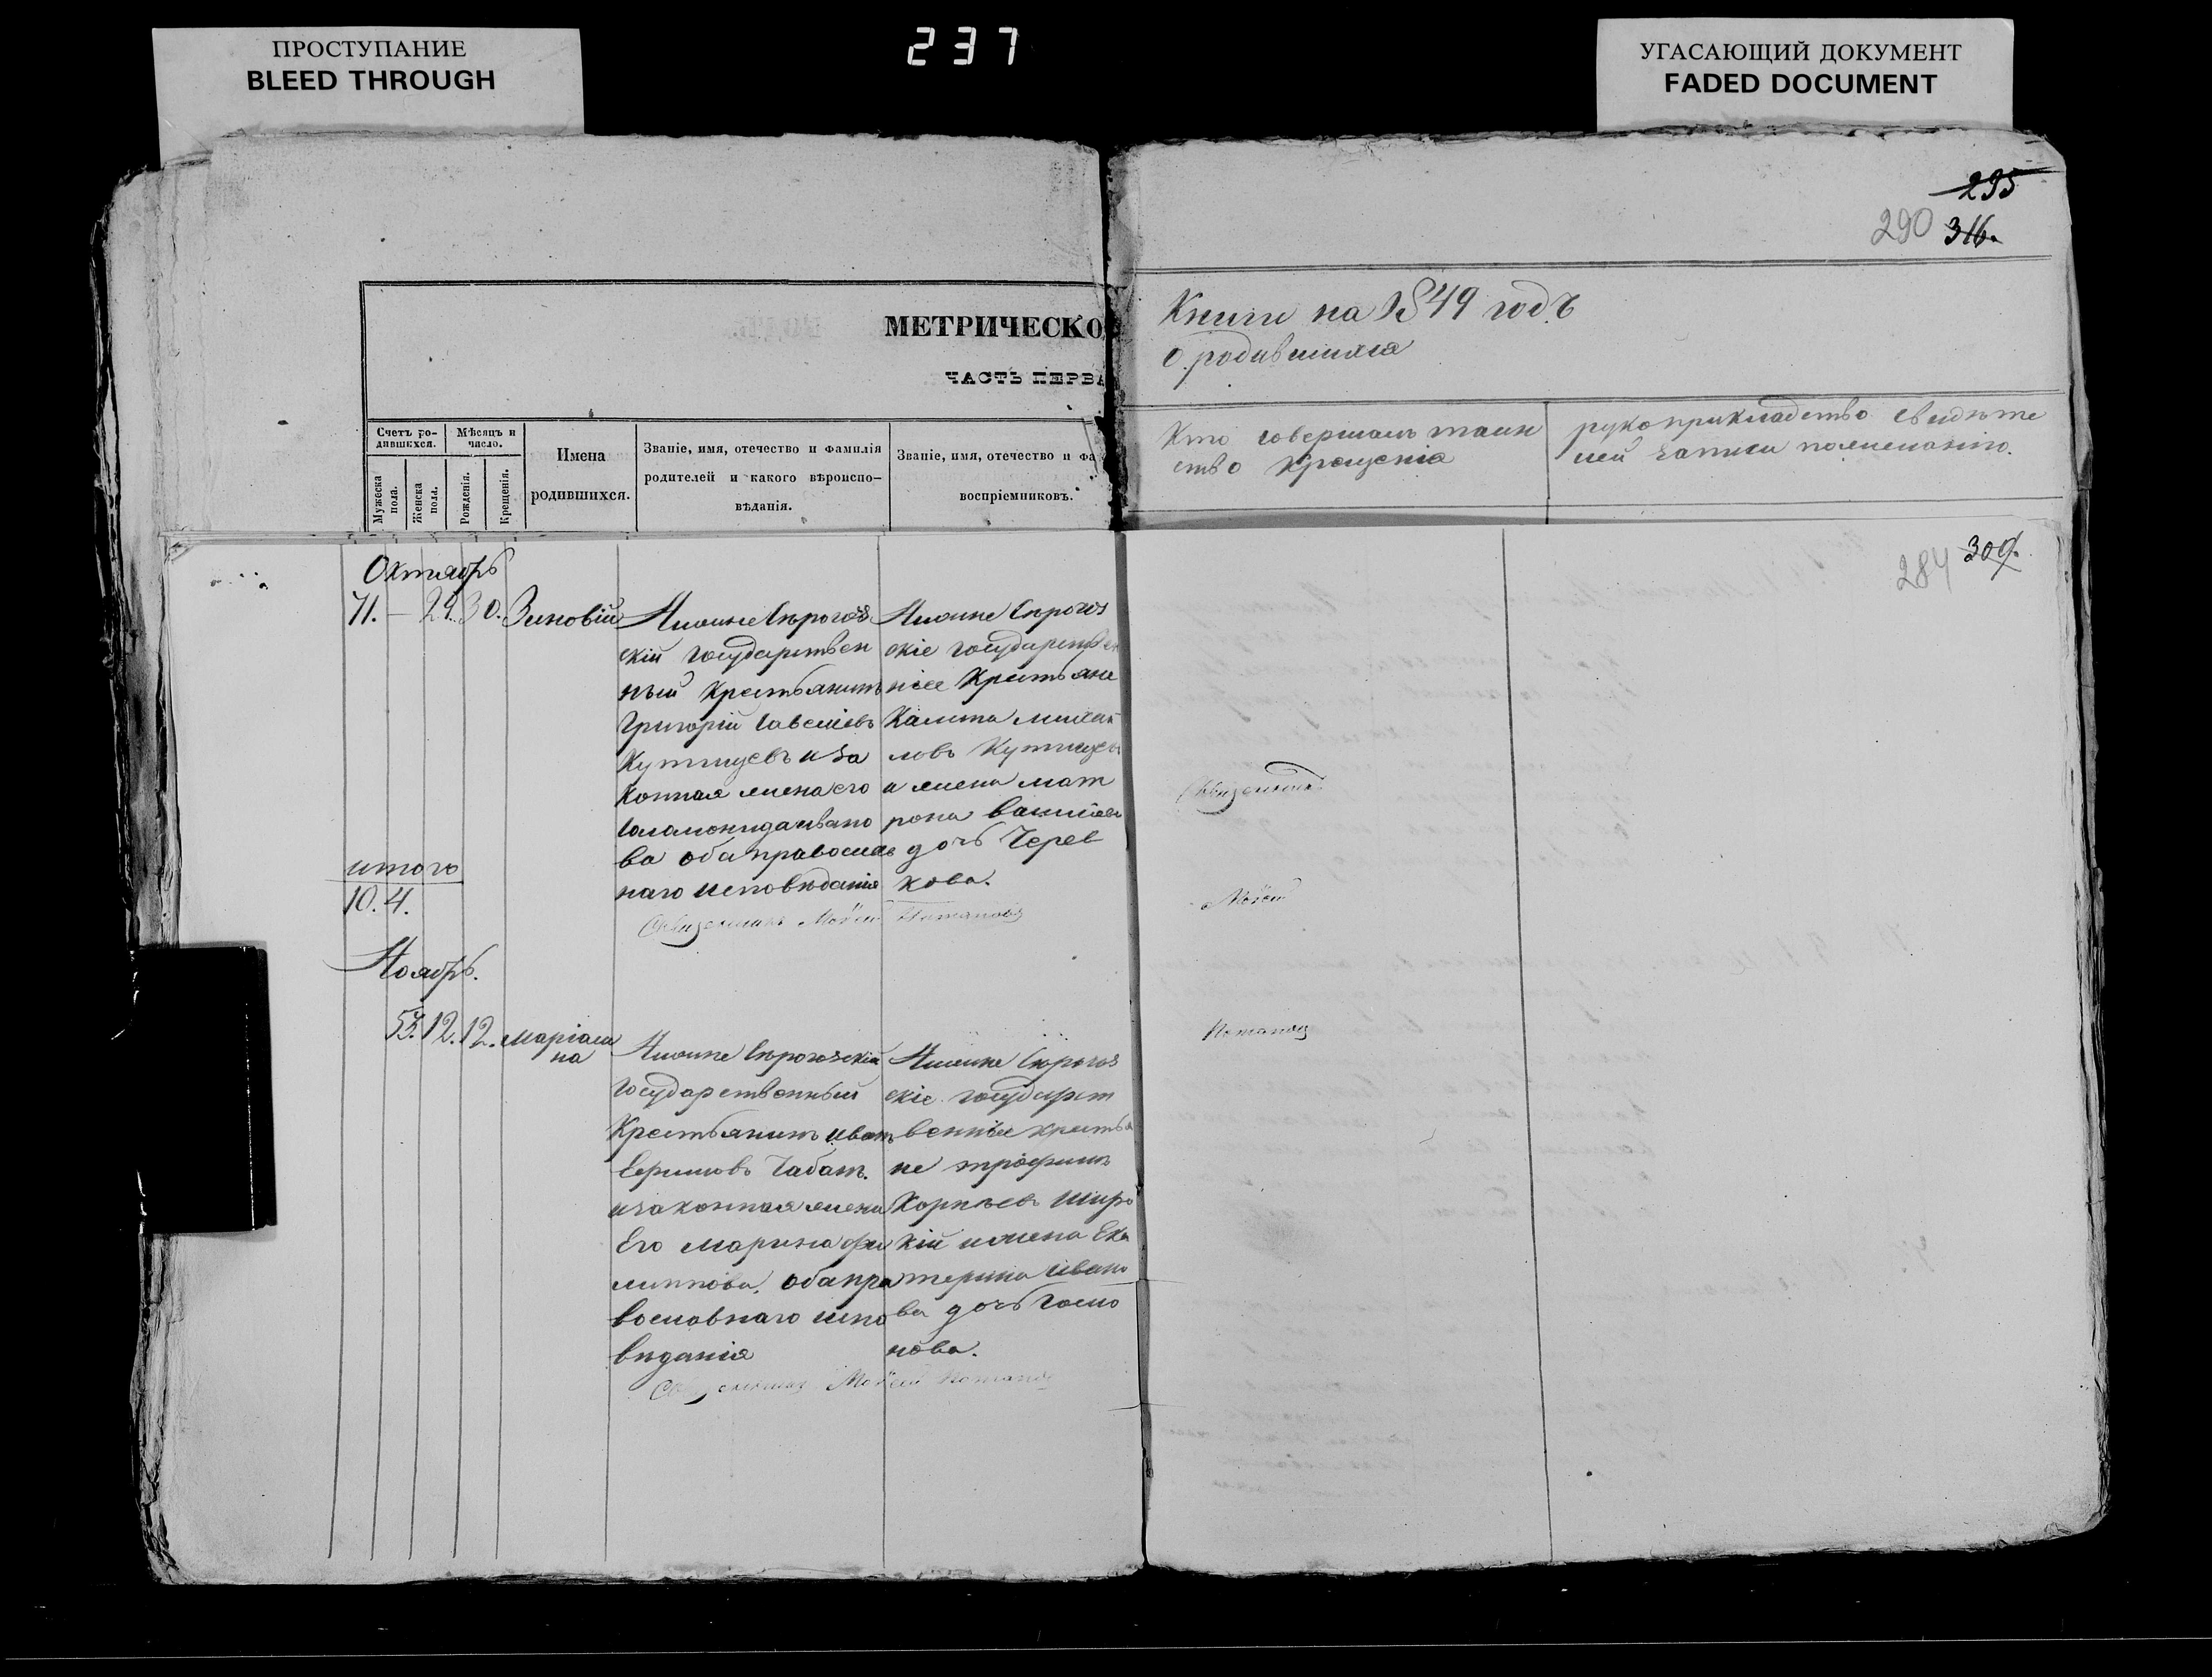 ПРОСТУПАНИЕ
BLEED THROUGH
237
УГАСАЮЩИЙ ДОКУМЕНТ
FADED DOCUMENT
295
290 316.
МЕТРИЧЕСКО
ЧАСТЬ ПЕРВА
Книги на 1849 годъ
о родившихся
Счетъ ро-
дившихся.
Мѣсяцъ и
число.
Мужеска
пола.
Женска
пола.
Рожденія.
Крещенія.
Имена
родившихся.
Званіе, имя, отечество и фамилія
родителей и какого вѣроиспо-
вѣданія.
Званіе, имя, отечество и фа
воспріемниковъ.
Кто совершалъ таин
ство крещенія
рукоприкладство свидѣте
лей записи по желанію.
284 300.
Октябрь
71. – 29. 30. Зиновій
Нижне Сѣрогоз
скій государствен
ный крестьянинъ
Григорій Савеліевъ
Кутищевъ и за
конная жена его
Саламонида Ивано
ва оба православ
наго исповѣданія
Нижне Сѣрогоз
скіе государствен
ные крестьяне
Калина Михаи
ловъ Кутищевъ
и жена Мат
рона
дочь Черев
кова.
Священникъ Моѵсей Потаповъ
итого
10. 4.
Священникъ
Моѵсей
Потаповъ
Ноябрь.
53. 12. 12. Маріам
на
Нижне Сѣрогозскій
государственный
крестьянинъ Иванъ
Ефимовъ Чабанъ.
и законная жена
Его Марина Фи
липпова. оба пра
вославнаго испо
вѣданія
Нижне Сѣрогоз
скіе государст
венные крестья
не Трофимъ
Корнѣевъ Широ
кій и жена Ека
терина Ивано
ва дочь
нова.
Священникъ Моѵсей Потаповъ